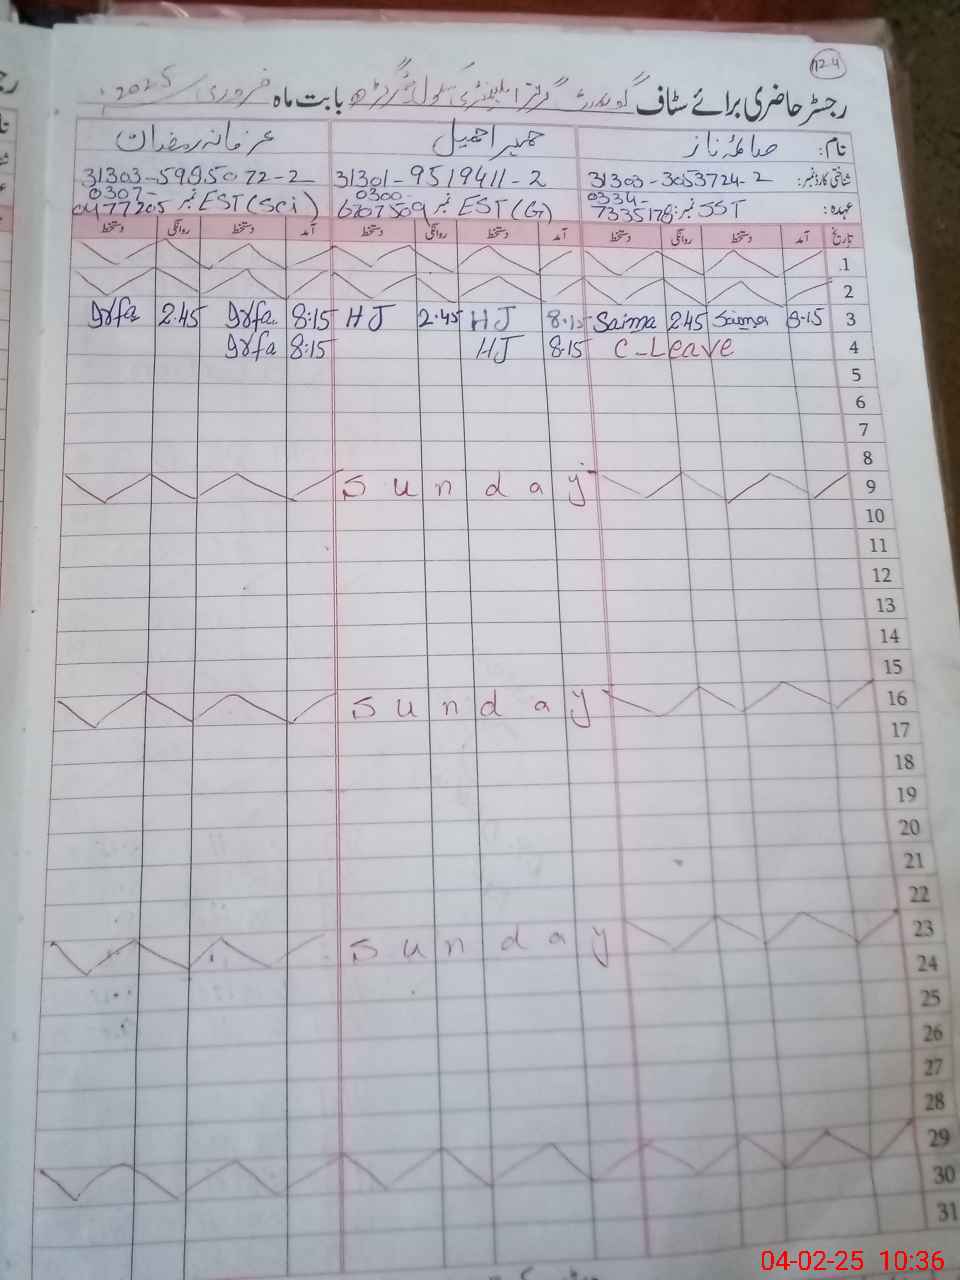 124
رجسٹر حاضری برائے سٹاف گورنمنٹ گرلز ایلیمنٹری سکول بابت ماہ فروری 2025
نام: صائمہ ناز حمیرا جمیل عرفانہ رمضان
شناختی کارڈ نمبر: 31303-3053724-2 31301-9519411-2 31303-5995072-2
عہدہ: SST نمبر: 0334-7335178 EST(G) نمبر 0300-6707509 EST(Sci) نمبر 0307-0477205
تاریخ آمد دستخط روانگی دستخط آمد دستخط روانگی دستخط آمد دستخط روانگی دستخط
1
2
3 8-15 Saima 2.45 Saima 8.15 HJ 2.45 HJ 8:15 Irfa 2.45 Irfa
4 C-Leave 8.15 HJ 8:15 Irfa
5
6
7
8
9 Sunday
10
11
12
13
14
15
16 Sunday
17
18
19
20
21
22
23 Sunday
24
25
26
27
28
29
30
31
04-02-25 10:36